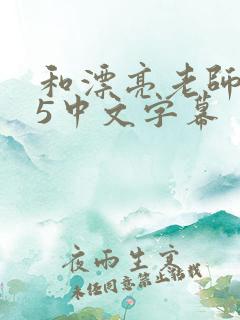 和漂亮老師
5中文字幕
夜雨生寒
未经同意禁止转载